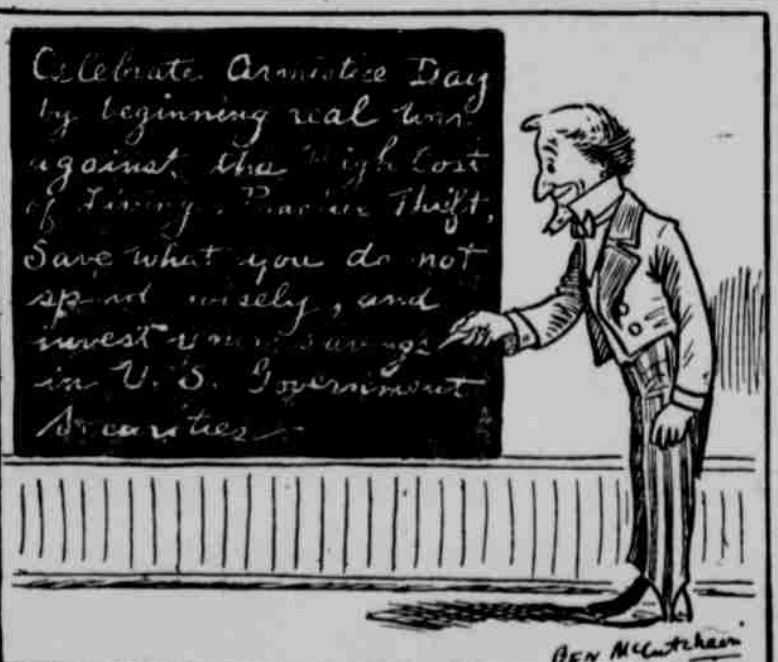 Celebrate Armistice Day
by beginning real war
against the High Cost
of Living. Practice Thrift,
Save what you do not
spend wisely, and
invest your savings
in U. S. Government
Securities
BEN McCutcheon